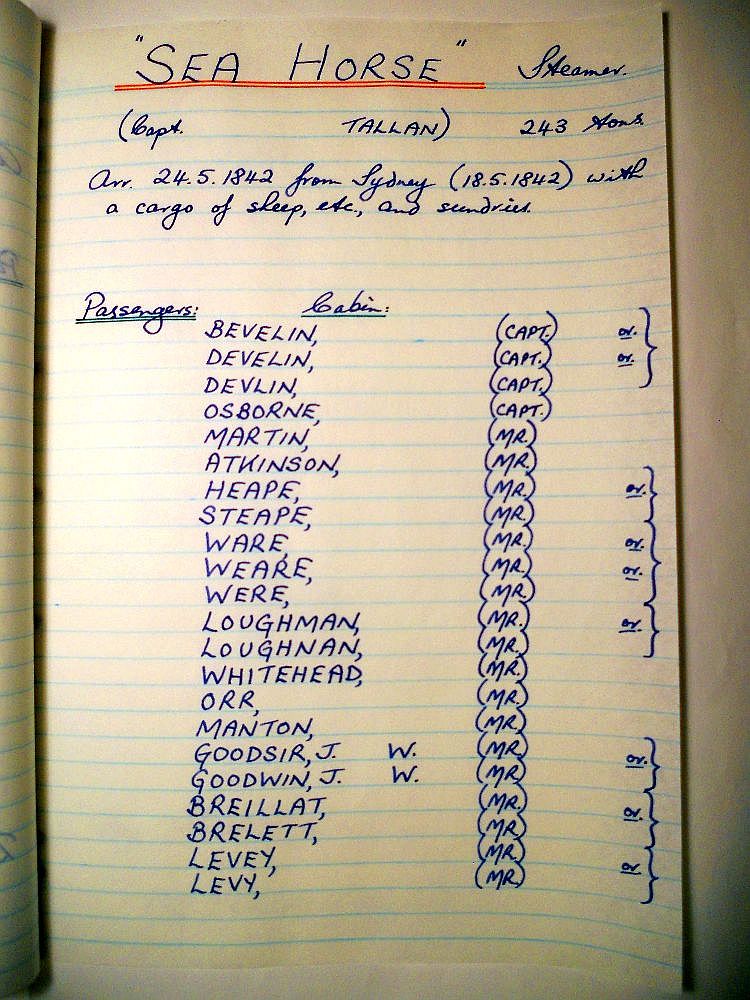 "SEA HORSE" Steamer.
(Capt. TALLAN) 243 tons.
Arr. 24.5.1842 from Sydney (18.5.1842) with
a cargo of sheep, etc., and sundries.
Passengers: Cabin:
BEVELIN, (CAPT.) or.
DEVELIN, (CAPT.) or.
DEVLIN, (CAPT.)
OSBORNE, (CAPT.)
MARTIN, (MR.)
ATKINSON, (MR.)
HEAPE, (MR.) or.
STEAPE, (MR.)
WARE, (MR.) or.
WEARE, (MR.) or.
WERE, (MR.)
LOUGHMAN, (MR.) or.
LOUGHNAN, (MR.)
WHITEHEAD, (MR.)
ORR, (MR.)
MANTON, (MR.)
GOODSIR, J. W. (MR.) or.
GOODWIN, J. W. (MR.)
BREILLAT, (MR.) or.
BRELETT, (MR.)
LEVEY, (MR.) or.
LEVY, (MR.)